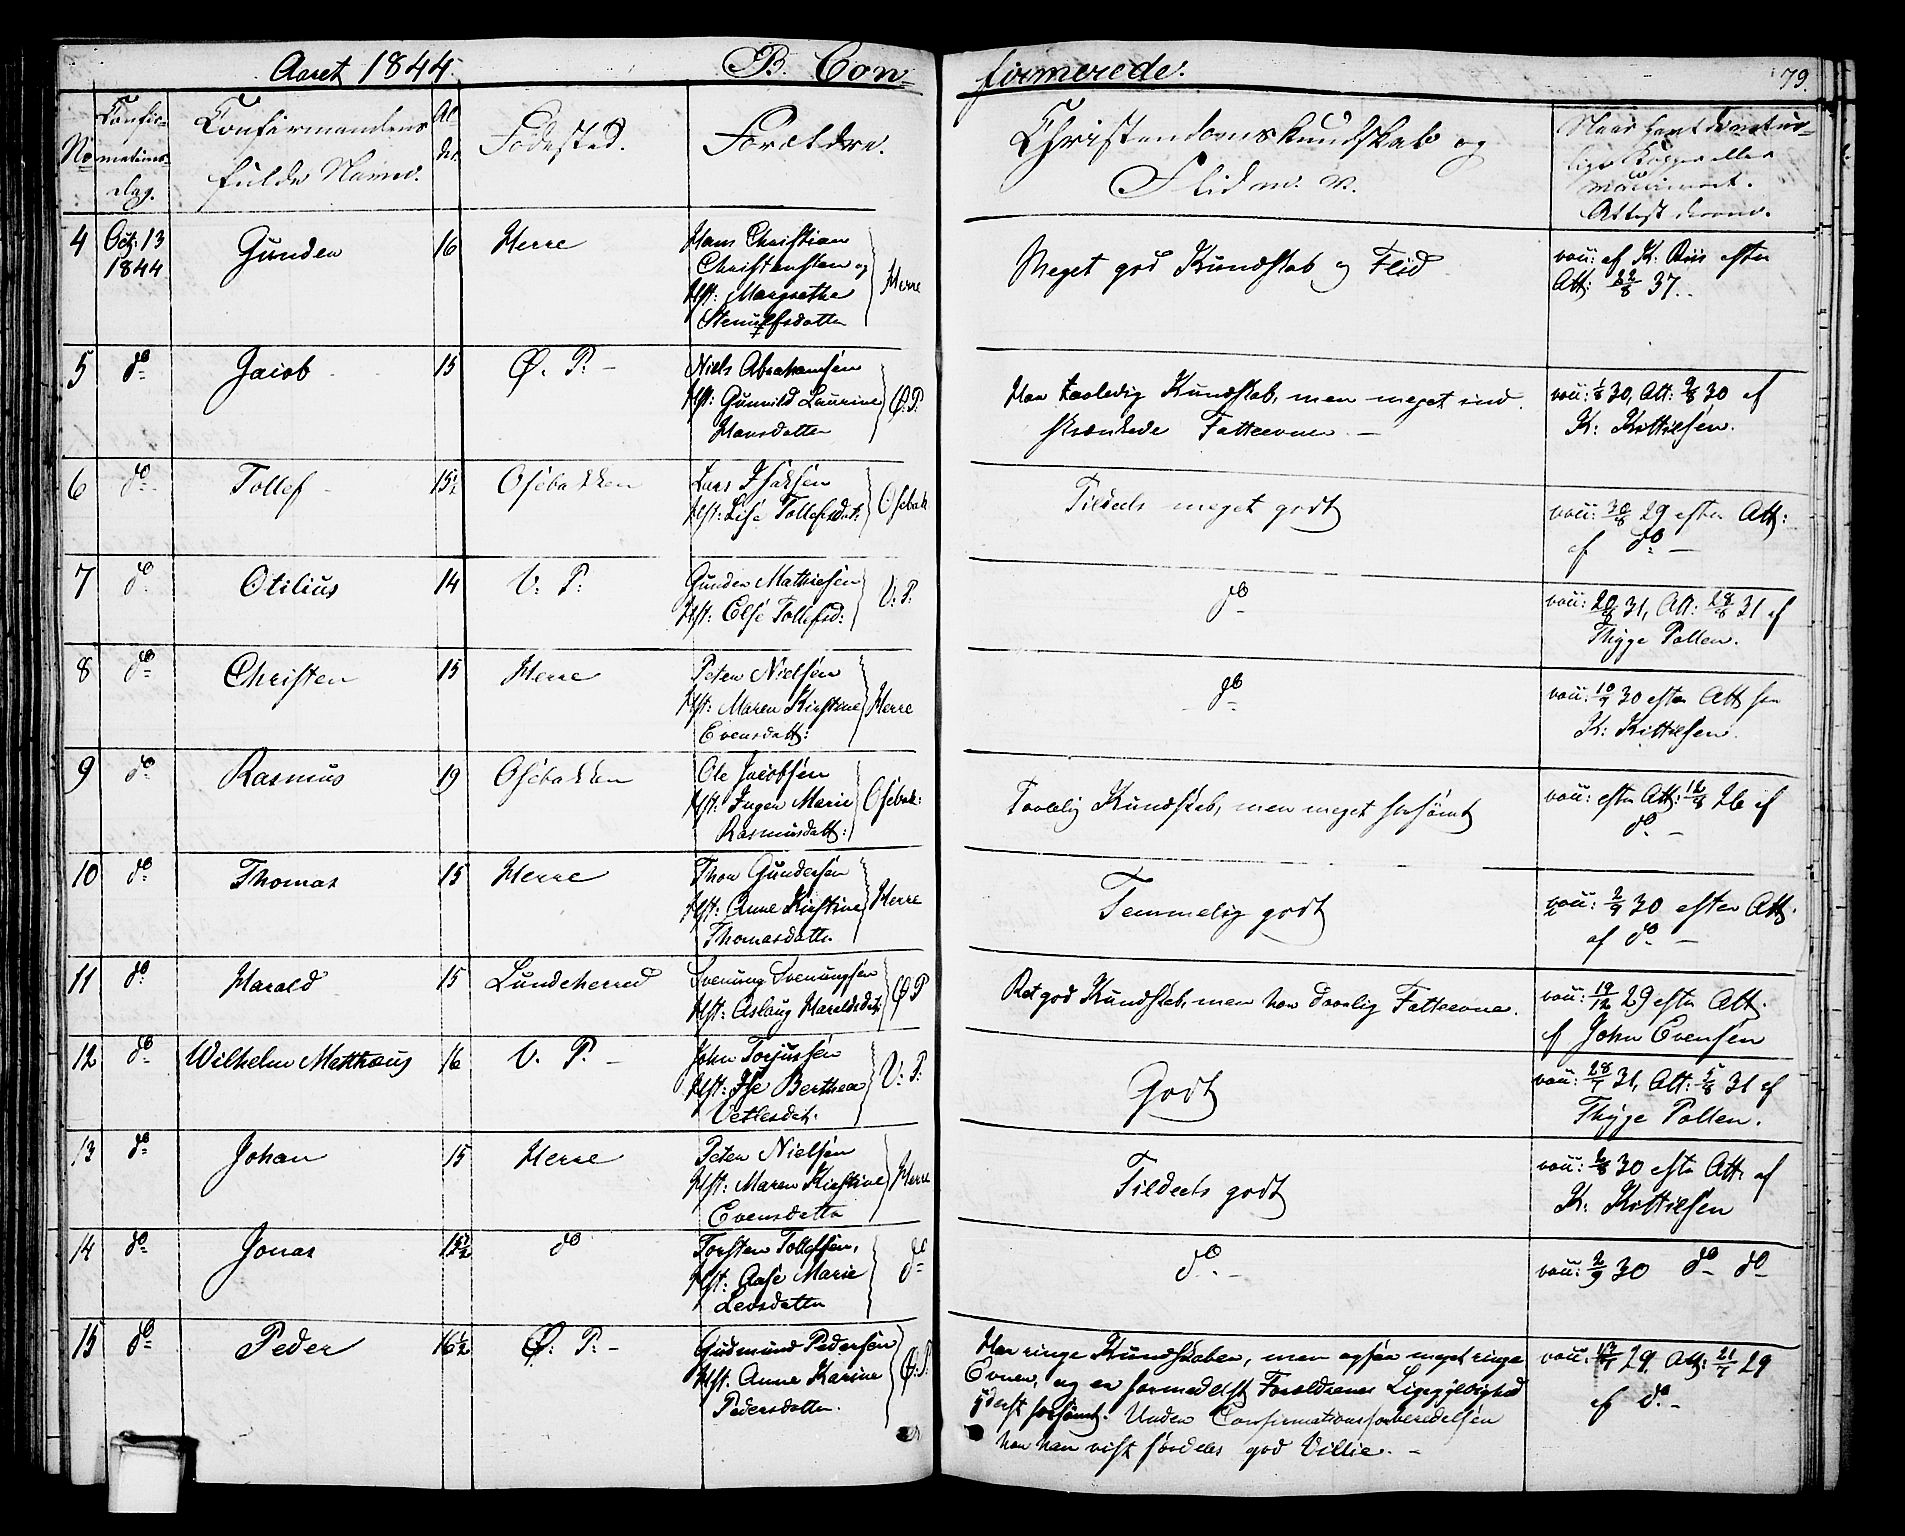 Aaret 1844. B. Con-
firmerede. 79.
No
Confir-
mations-
dag.
Confirmandens
fulde Navne.
Al
der
Fødested.
Forældre.
Christendomskundskab og
Flid m. v.
Naar havt de natur-
lige Kopper eller
vaccineret.
Attest derom.
4 Oct: 13
1844 Gunder 16 Herre
Hans Christian
Christensen og
Hst: Margrethe
Stenulfsdatter
Herre
Meget god Kundskab og Flid
vac: af K. Riis efter
Att: 22/8 37.
5 do Jacob 15 Ø. P. -
Niels Abrahamsen
Hst: Gunnild Laurine
Hansdatter
Ø: P.
Har taalelig Kundskab, men meget ind-
skrænkede Fatteevner. -
vac: 1/8 30, Att: 9/8 30 af
K: Kittilsen.
6 do Tollef - 15 1/2 Osebakken
Lars Isaksen
Hst: Lise Tollefsdat:
Osebak.
Tildels meget godt
vac: 30/8 29 efter Att:
af do -
7 do Otilius 14 V. P:
Gunder Mathiesen
Hst: Else Tollefsd:
V: P:
do
vac: 20/8 31, Att: 28/8 31 af
Thyge Pallen.
8 do Christen 15 Herre
Peter Nielsen
Hst: Maren Kirstine
Evensdatt:
Herre
do
vac: 10/9 30 efter Att fra
K: Kittilsen.
9 do Rasmus 19 Osebakken
Ole Jacobsen
Hst: Inger Marie
Rasmusdatt:
Osebak:
Taalelig Kundskab, men meget forsømt
vac: efter Att: 12/8 26 af
do -
10 do Thomas 15 Herre
Thor Gundersen
Hst: Anne Kirstine
Thomasdatter
Herre
Temmelig godt
vac: 2/9 30 efter Att.
af do -
11 do Harald 15 Lundeherred
Svenung Svenungsen
Hst: Aslaug Haraldsdat:
Ø P
Ret god Kundskab, men har daarlig Fatteevne.
vac: 19/12 29 efter Att.
af John Evensen
12 do Wilhelm Matthæus 16 V. P. -
John Torjussen
Hst: Ise Berthea
Vetlesdat.
V: P:
Godt
vac: 28/7 31, Att: 5/8 31 af
Thyge Pallen.
13 do Johan 15 Herre
Peter Nielsen
Hst: Maren Kirstine
Evensdatter
Herre
Tildels godt
vac: 2/8 30 efter Att. af
K: Kittilsen
14 do Jonas 15 1/2 do
Torsten Tollefsen,
Hst: Aase Marie
Leosdatter
do
do. -
vac: 2/9 30 do do
15 do Peder 16 1/2 Ø: P: -
Gudmund Pedersen
Hst: Anne Karine
Pedersdatter.
Ø: P.
Har ringe Kundskaber, men ogsaa meget ringe
Evner, og er formedelst Forældrenes Ligegyldighed
yderst forsømt. Under Confirmationsforberedelsen
har han vist særdeles god Villie. -
vac: 13/7 29. Att: 21/7 29
af do -